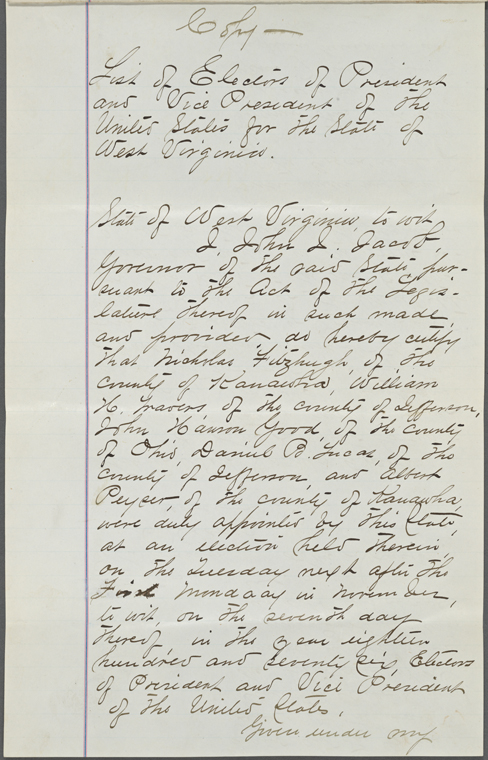 Copy —
List of Electors of President
and Vice President of the
United States for the State of
West Virginia.
State of West Virginia, to wit
I, John J. Jacob,
Governor of the said State, pur-
suant to the Act of the Legis-
lature thereof in such made
and provided, do hereby certify
that Nicholas Fitzhugh, of the
county of Kanawha, William
H. Travers, of the county of Jefferson,
John Hanson Good, of the county
of Ohio, Daniel B. Lucas, of the
county of Jefferson, and Albert
Peyser, of the county of Kanawha,
were duly appointed by this State,
at an election held therein,
on the Tuesday next after the
First Monday in November,
to wit, on the seventh day
thereof, in the year eighteen
hundred and seventy six, Electors
of President and Vice President
of the United States.
Given under my